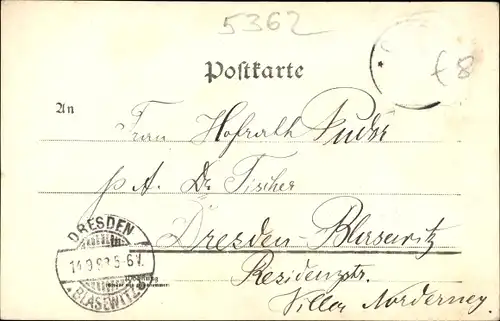 5362
Postkarte
£8
An
Frau Hofrath Puder
p. A. Dr. Fischer
Dresden-Blasewitz
DRESDEN
5-6 V.
Residenzstr.
BLASEWITZ
Villa Norderney